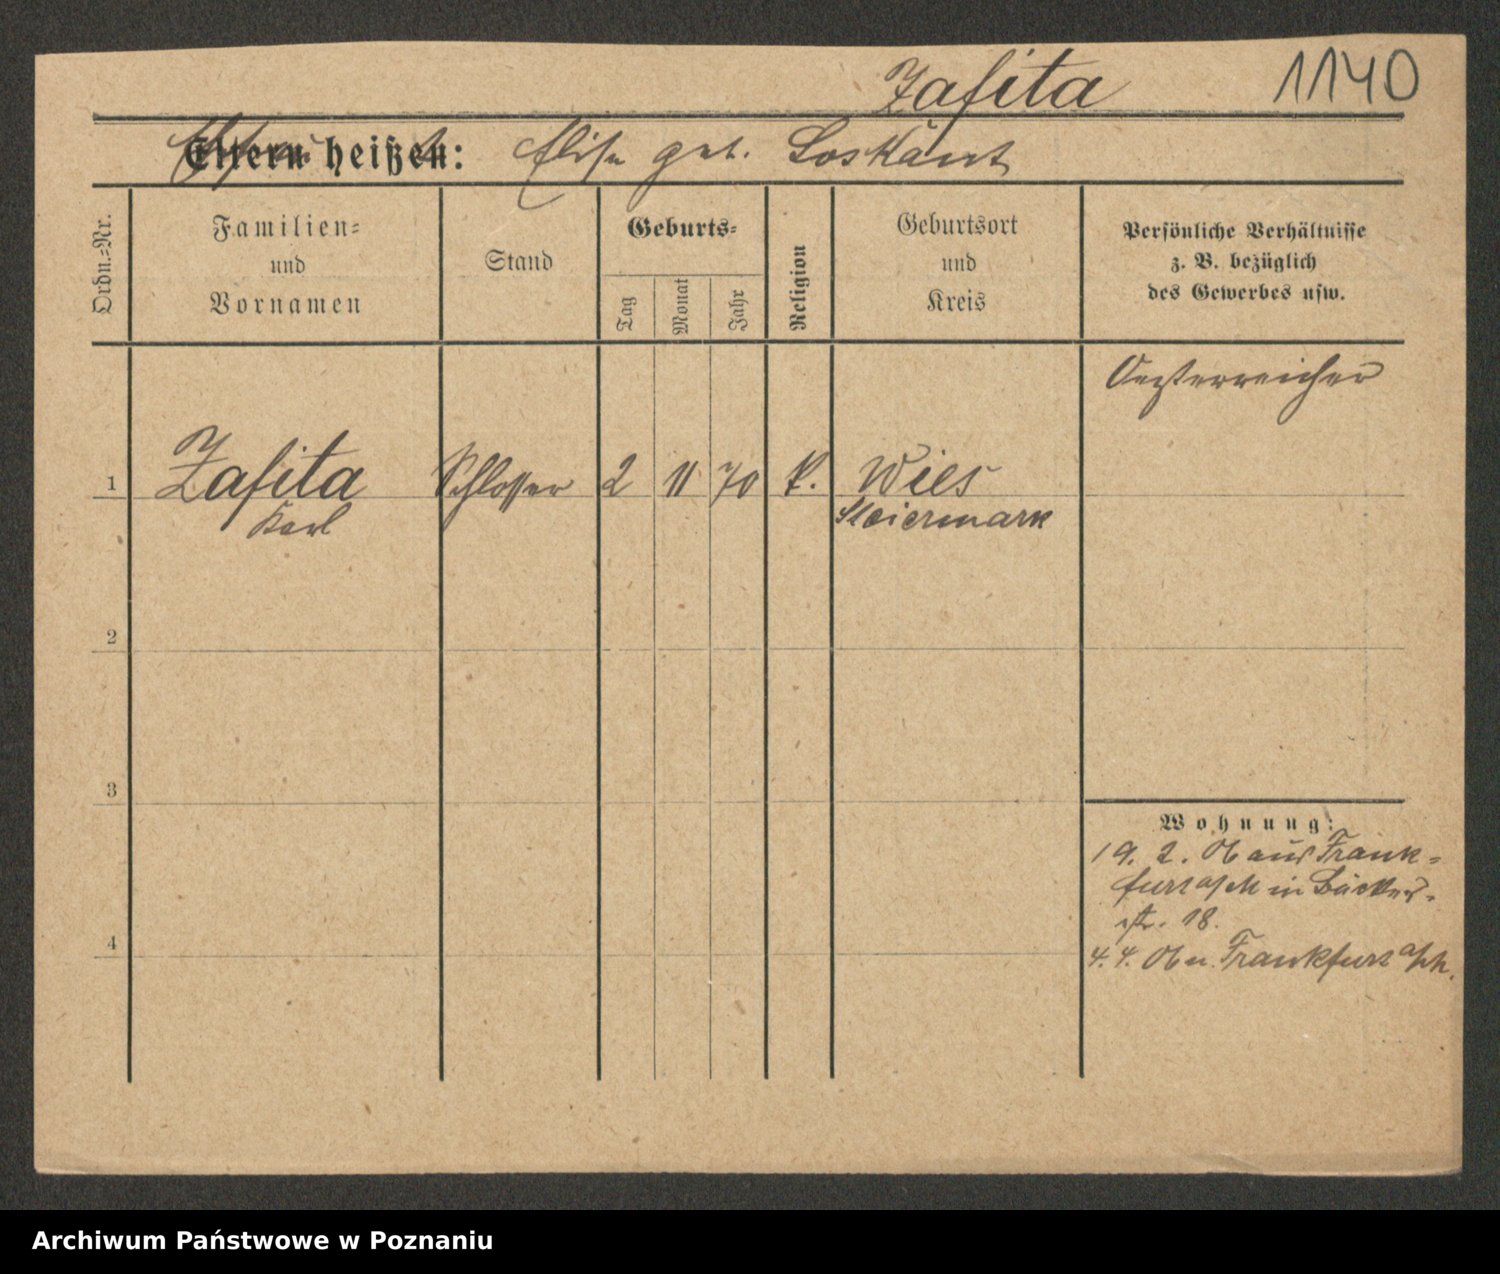 Zafita 1140
Eltern heißen: Elise geb. Loskant
Ordn.=Nr.
Familien=
und
Vornamen
Stand
Geburts=
Tag
Monat
Jahr
Religion
Geburtsort
und
Kreis
Persönliche Verhältnisse
z. B. bezüglich
des Gewerbes usw.
Oesterreicher
1 Zafita Schlosser 2 11 70 k. Wies
Karl Steiermark
2
3
4
Wohnung:
19. 2. 06 aus Frank-
furt a/M in Bäcker-
str. 18.
4. 4. 06 n. Frankfurt a/M.
Archiwum Państwowe w Poznaniu